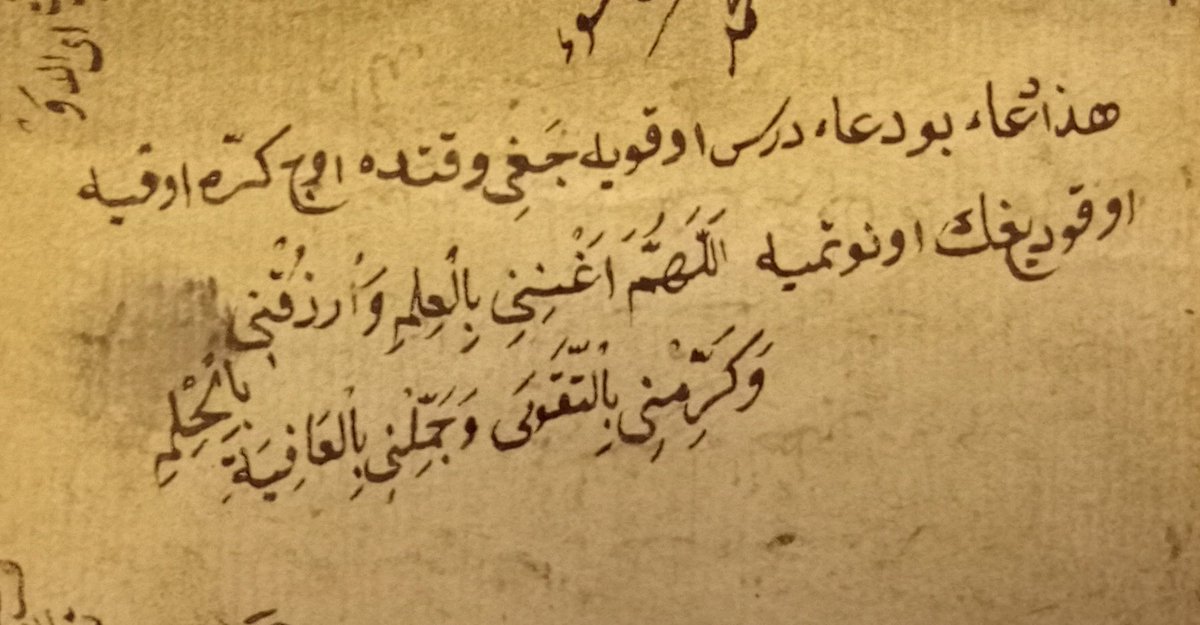 هذا دُعاء بو دعاء درس اوقويه جَغِي وقتده اوج كرّه اوقيه
اوقوديغك اونوتميه اَللَّهُمَّ اَغْنِنِي بِالْعِلمِ وَاُرزُقْنِي
بِالْحِلِمِ
وَكَرِّمْنِي بِالْتَّقْوَى وَجَمِّلْنِي بِالْعَافِيَةِ